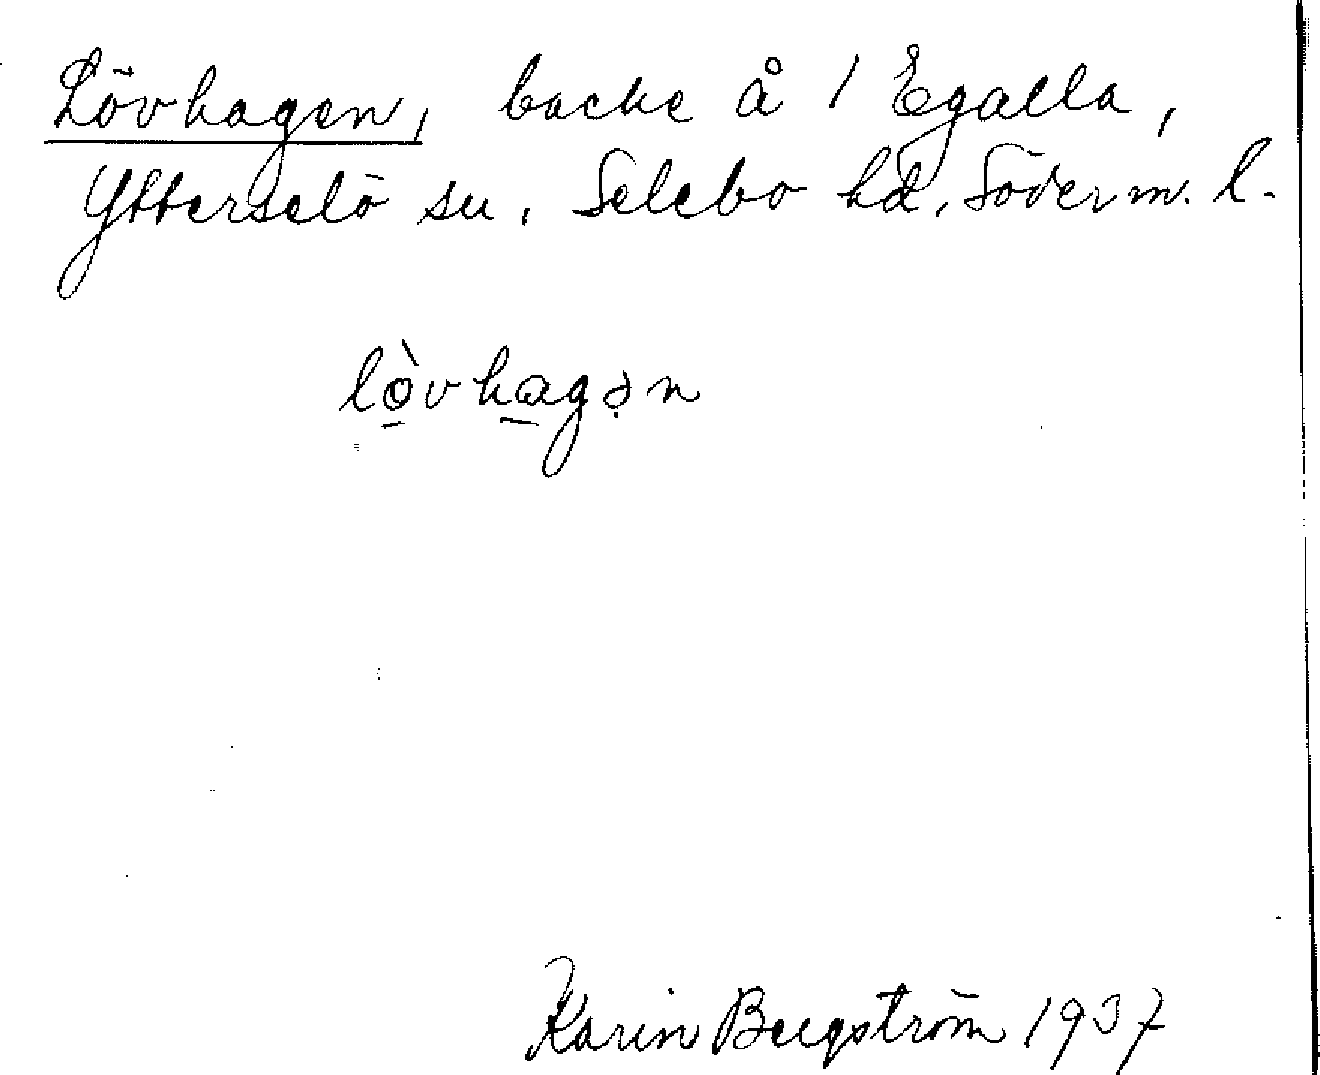 Lövhagen, backe å 1 Egalla,
Ytterselö sn. Selebo hd. Söderm. l.
lò̱vha̱gə̣n
Karin Bergström 1937